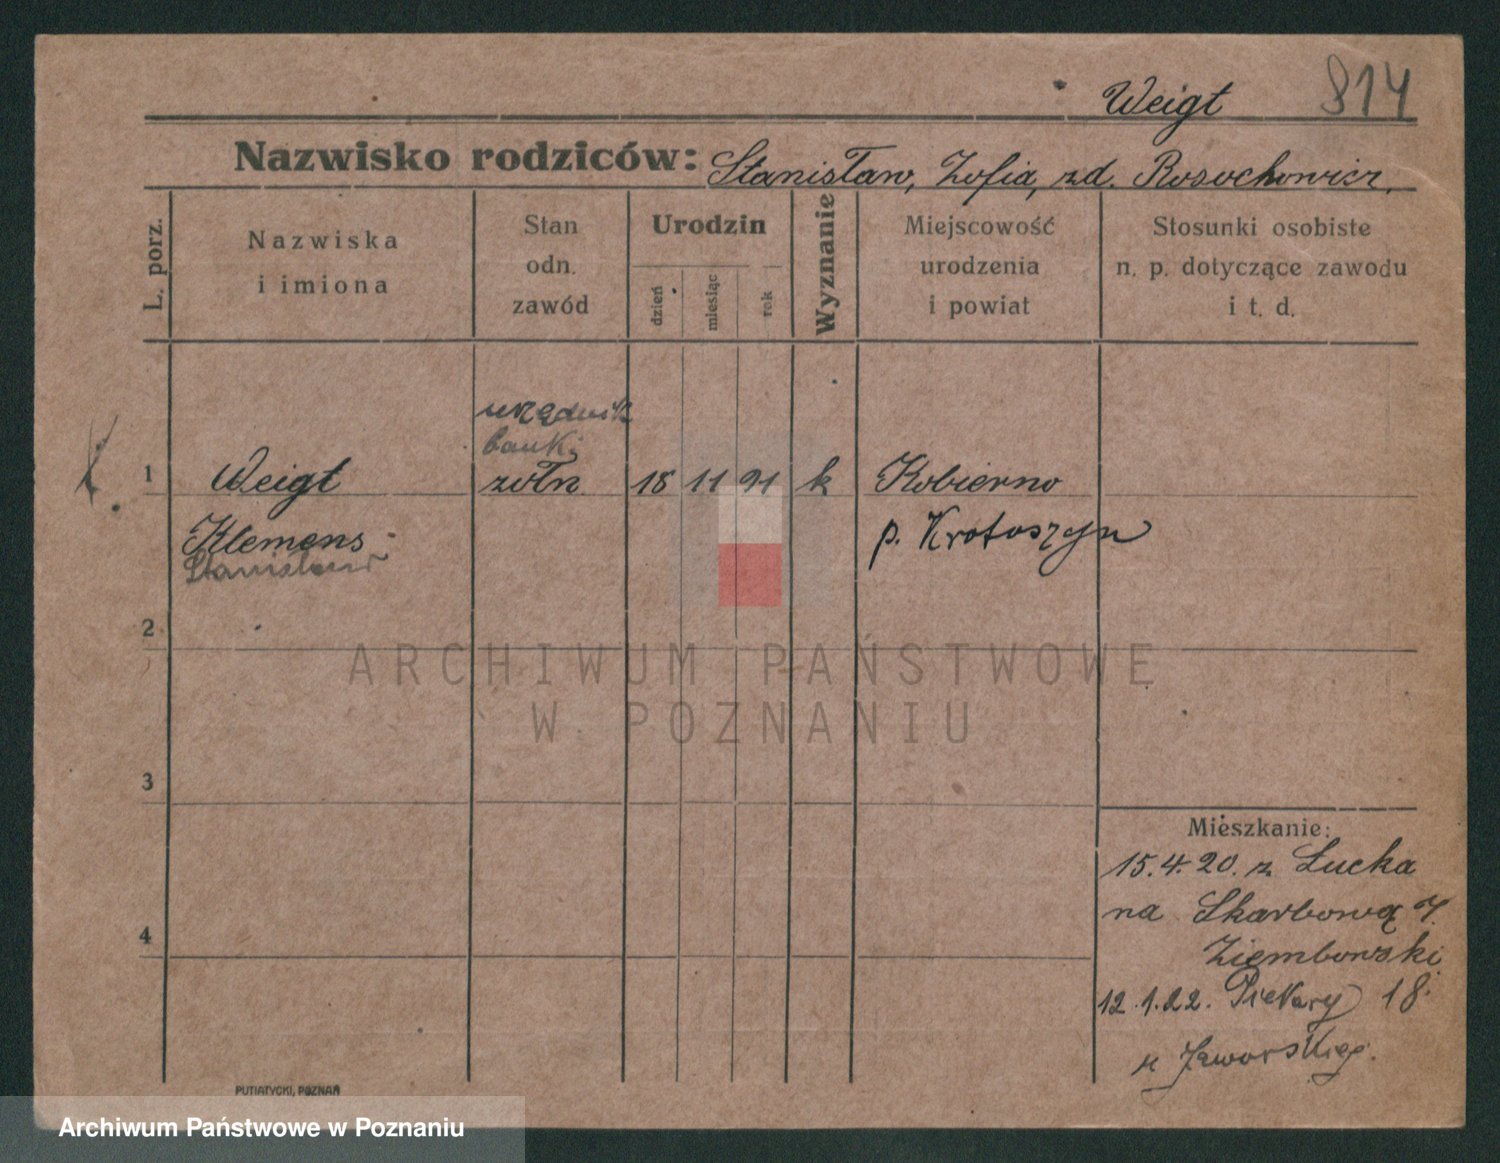 Weigt 814
Nazwisko rodziców: Stanisław, Zofia, zd. Rosochowicz.
L. porz.
Nazwiska
i imiona
Stan
odn.
zawód
Urodzin
dzień
miesiąc
rok
Wyznanie
Miejscowość
urodzenia
i powiat
Stosunki osobiste
n. p. dotyczące zawodu
i t. d.
urzędnik
bank.
1 Weigt żołn 18 11 91 k Kobierno
Klemens p. Krotoszyn
Stanisław
2
3
4
Mieszkanie:
15.4.20. z Łucka
na Skarbową 7.
Ziembowski
12.1.22. Piekary 18.
u Jaworskieg.
PUTIATYCKI, POZNAŃ
ARCHIWUM PAŃSTWOWE
W POZNANIU
Archiwum Państwowe w Poznaniu